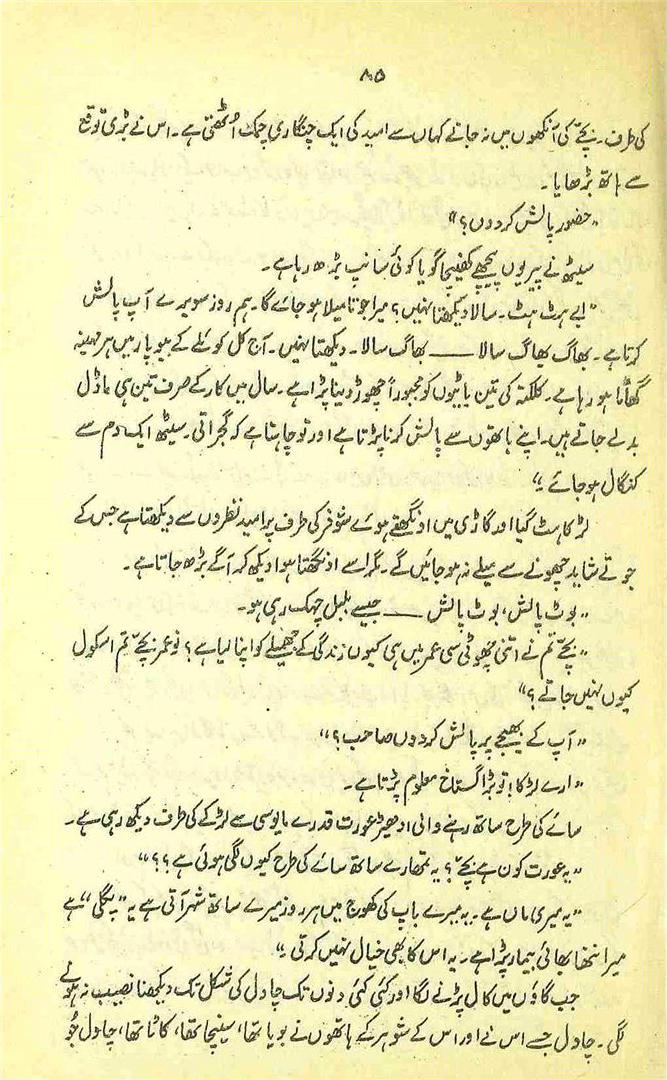 ۸۵
کی طرف ۔ بچّے کی آنکھوں میں نہ جانے کہاں سے امید کی ایک چنگاری چمک اُٹھتی ہے ۔ اس نے بڑی توقع
سے ہاتھ بڑھایا ۔
”حضور پالش کر دوں؟“
سیٹھ نے پیر یوں پیچھے کھینچا گویا کوئی سانپ بڑھ رہا ہے ۔
”ابے ہٹ ہٹ ۔ سالا دیکھتا نہیں؟ میرا جوتا میلا ہو جائے گا ۔ ہم روز سویرے آپ پالش
کرتا ہے ۔ بھاگ بھاگ سالا ــــــ بھاگ سالا ۔ دیکھتا نہیں ۔ آج کل کوئلے کے بیوپار میں ہر مہینہ
گھاٹا ہو رہا ہے ۔ کلکتہ کی تین پارٹیوں کو مجبوراً چھوڑ دینا پڑا ہے ۔ سال میں کار کے صرف تین ہی ماڈل
بدلے جاتے ہیں ۔ اپنے ہاتھوں سے پالش کرنا پڑتا ہے اور تو چاہتا ہے کہ گجراتی سیٹھ ایک دم سے
کنگال ہو جائے ۔“
لڑکا ہٹ گیا اور گاڑی میں اونگھتے ہوئے شوفر کی طرف پرامید نظروں سے دیکھتا ہے جس کے
جوتے شاید چھونے سے میلے نہ ہو جائیں گے ۔ مگر اسے اونگھتا ہوا دیکھ کر آگے بڑھ جاتا ہے ۔
”بوٹ پالش، بوٹ پالش ــــــ جیسے بلبل چہک رہی ہو ۔
”بچّے تم نے اتنی چھوٹی سی عمر میں ہی کیوں زندگی کے جھمیلے کو اپنا لیا ہے؟ نوعمر بچّے تم اسکول
کیوں نہیں جاتے؟“
”آپ کے بھیجے پر پالش کر دوں صاحب؟“
”ارے لڑکا! تو بڑا گستاخ معلوم پڑتا ہے ۔
سائے کی طرح ساتھ رہنے والی ادھیڑ عورت قدرے مایوسی سے لڑکے کی طرف دیکھ رہی ہے ۔
”یہ عورت کون ہے بچّے؟ یہ تمھارے ساتھ سائے کی طرح کیوں لگی ہوئی ہے؟؟“
”یہ میری ماں ہے ۔ یہ میرے باپ کی کھوج میں ہر روز میرے ساتھ شہر آتی ہے یہ ”پگلی“ ہے
میرا ننھا بھائی بیمار پڑا ہے ۔ یہ اس کا بھی خیال نہیں کرتی ۔“
جب گاؤں میں کال پڑنے لگا اور کئی کئی دنوں تک چاول کی شکل تک دیکھنا نصیب نہ ہونے
لگی ۔ چاول جسے اس نے اور اس کے شوہر کے ہاتھوں نے بویا تھا، سینچا تھا، کاٹا تھا، چاول جُو